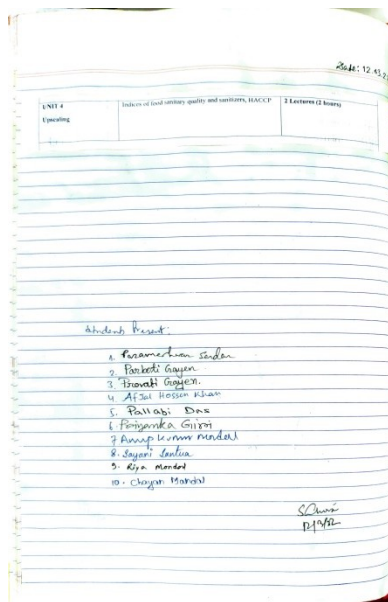 Date: 12.03.2
UNIT 4 Indices of food sanitary quality and sanitizers, HACCP 2 Lectures (2 hours)
Upscaling
Students Present:
1. Parameshwar Sardar
2. Parboti Gayen
3. Pravati Gayen.
4. Afjal Hossen Khan
5. Pallabi Das
6. Priyanka Giri
7. Anup Kumar Mondal
8. Sayani Santra
9. Riya Mondal
10. Chayan Mandal